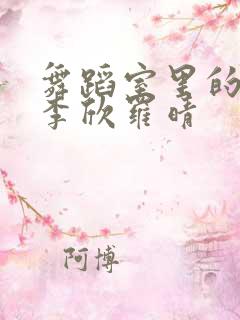 舞蹈室里的
李欣羅晴
阿博